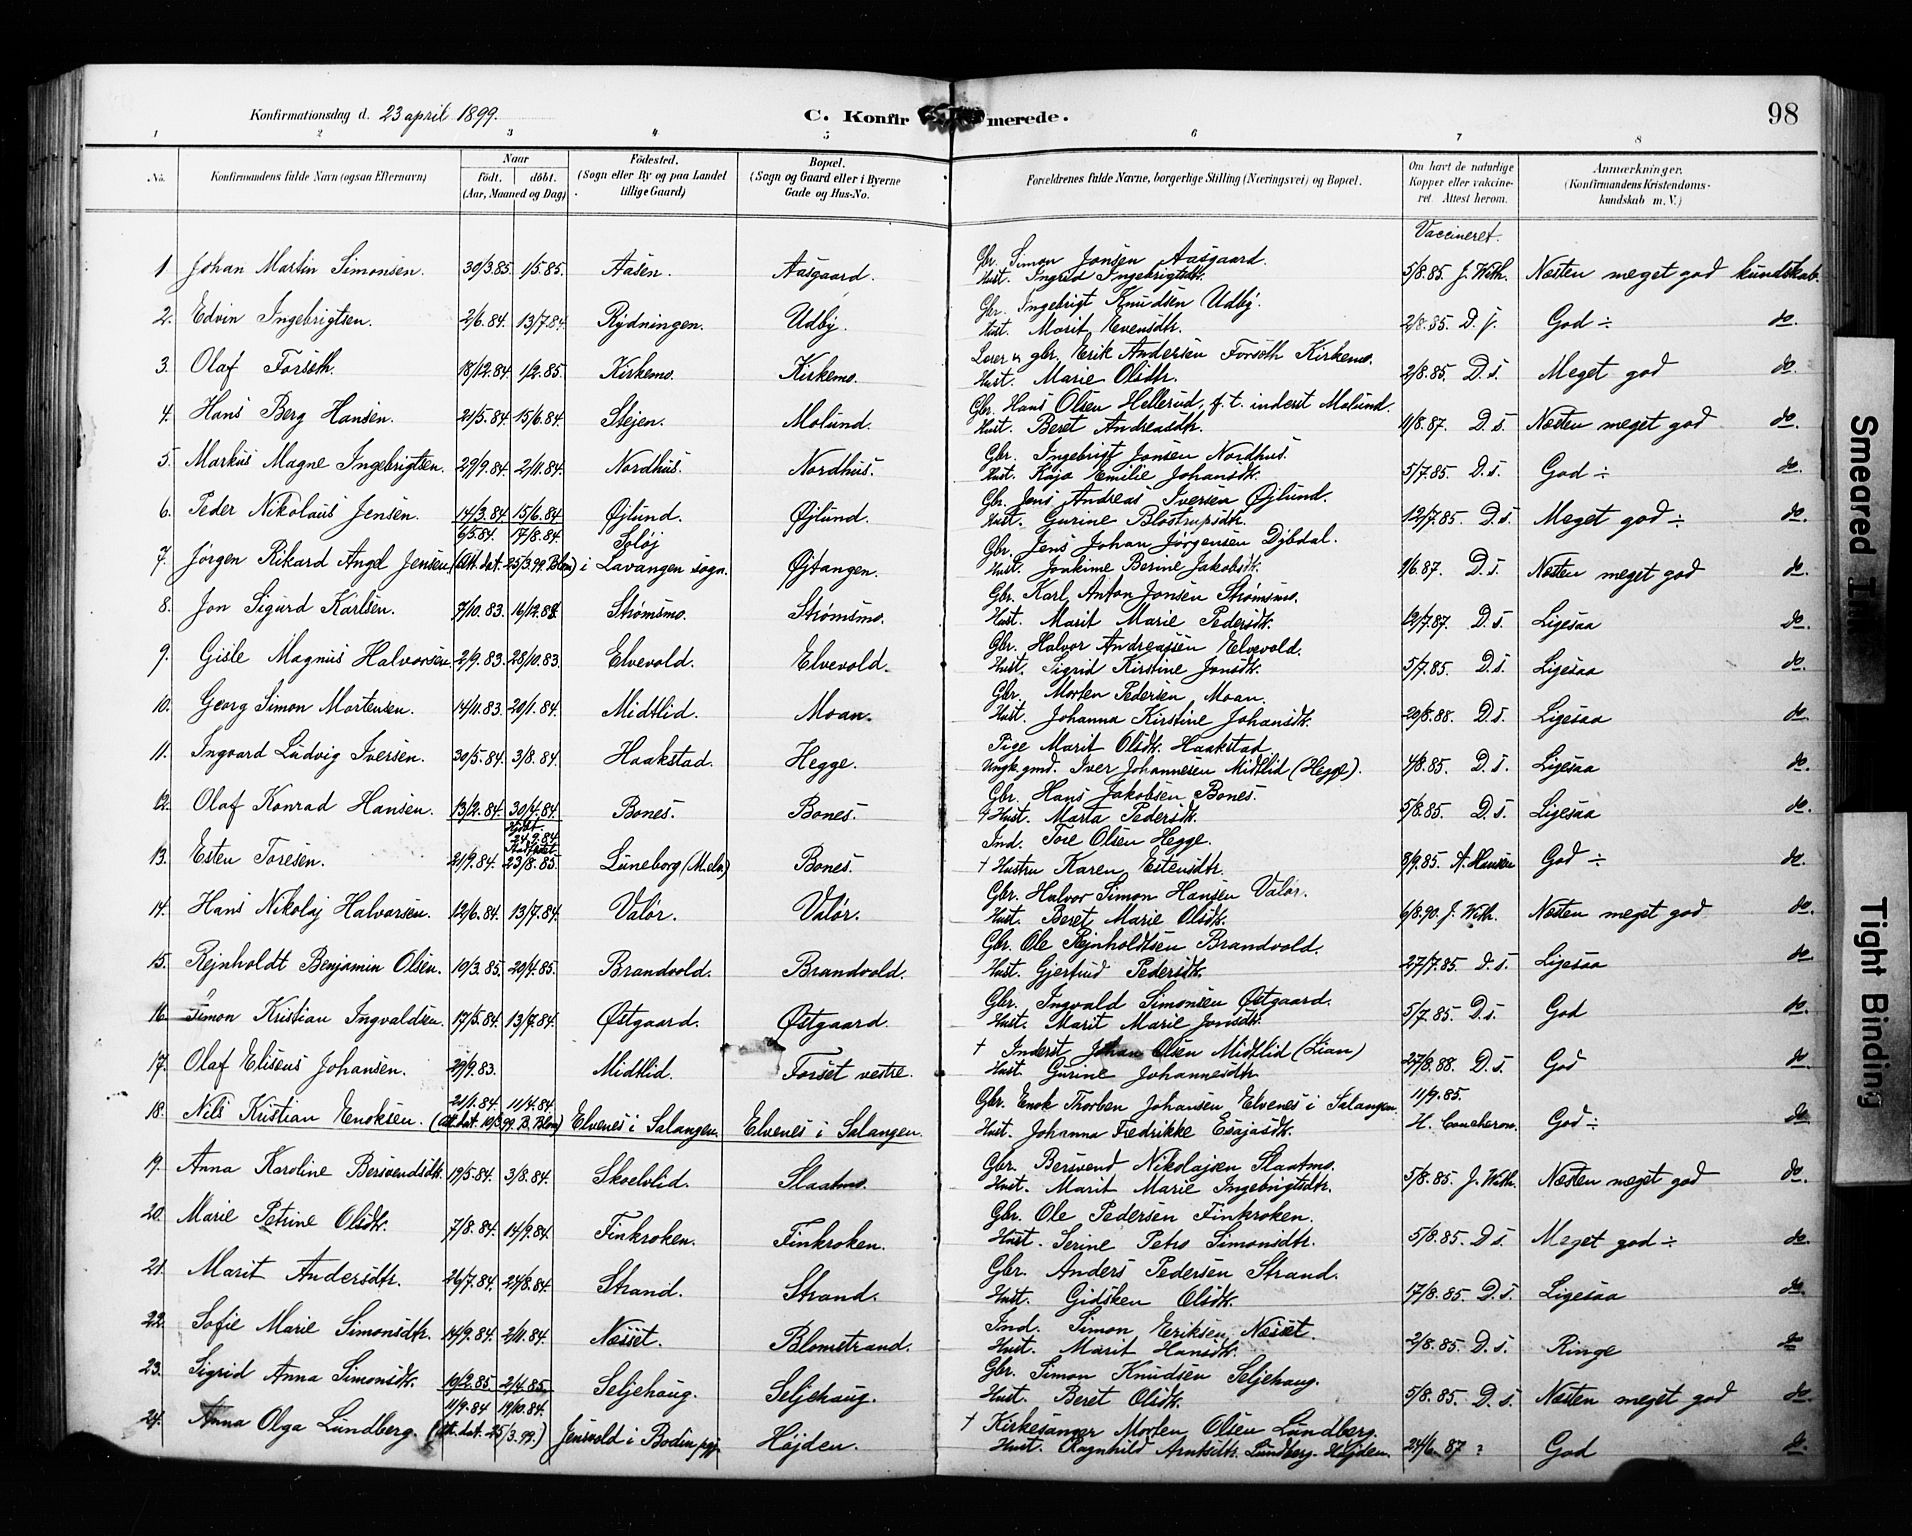 Konfirmationsdag d. 23 april 1899. C. Konfirmerede. 98
1 2 3 4 5 6 7 8
No. Konfirmandens fulde Navn (ogsaa Efternavn) Naar født. døbt. (Aar, Maaned og Dag) Fødested. (Sogn eller By og paa Landet tillige Gaard) Bopæl. (Sogn og Gaard eller i Byerne Gade og Hus-No. Forældrenes fulde Navne, borgerlige Stilling (Næringsvei) og Bopæl. Om havt de naturlige Kopper eller vakcineret. Attest herom. Anmærkninger. (Konfirmandens Kristendomskundskab m. V.)
Vaccineret.
1. Johan Martin Simonsen. 30/3.85. 1/5.85. Aasen. Aasgaard. Gbr. Simon Jonsen Aasgaard.
Hust. Ingrid Ingebrigtsdtr. 5/8.85. J. Weth. Næsten meget god kundskab.
2. Edvin Ingebrigtsen. 2/6.84. 13/7.84. Rydningen. Udby. Gbr. Ingebrigt Knudsen Udby.
Hust. Marit Evensdtr. 2/8.85. D. s. God ÷ do.
3. Olaf Forseth. 18/12.84 1/2.85. Kirkemo. Kirkemo. Lærer & gbr. Erik Andersen Forseth Kirkemo.
Hust. Marie Olsdtr. 2/8.85. D. s. Meget god do.
4. Hans Berg Hansen. 21/5.84. 15/6.84. Stejen. Molund. Gbr. Hans Olsen Hellerud, f. t. inderst Molund.
Hust. Beret Andreasdtr. 11/8.87. D. s. Næsten meget god do.
5. Markus Magne Ingebrigtsen. 29/9.84. 2/11.84. Nordhus. Nordhus. Gbr. Ingebrigt Jonsen Nordhus.
Hust. Kaja Emilie Johansdtr. 5/7.85. D. s. God ÷ do.
6. Peder Nikolaus Jensen. 14/3.84 15/6.84 Øjlund. Øjlund. Gbr. Jens Andreas Iversen Øjlund.
Hust. Gurine Blostrupsdtr. 12/7.85. D. s. Meget god ÷ do.
7. Jørgen Rikard Angel Jensen 6/5.84. 17/8.84. (Att. dat. 25/3.99. Blom) Soløj i Lavangen sogn. Øjtangen. Gbr. Jens Johan Jørgensen Dybdal.
Hust. Joakime Berine Jakobsdtr. 1/6.87. D. s. Næsten meget god do.
8. Jon Sigurd Karlsen. 7/10.83. 16/12.83. Strømsmo. Strømsmo. Gbr. Karl Anton Jonsen Strømsmo.
Hust. Marit Marie Pedersdtr. 12/7.87. D. s. Ligesaa do.
9. Gisle Magnus Halvorsen. 2/9.83. 28/10.83. Elvevold. Elvevold. Gbr. Halvor Andreassen Elvevold.
Hust. Sigrid Kirstine Jonsdtr. 5/7.85. D. s. Ligesaa do.
10. Georg Simon Mortensen. 14/11.83. 20/1.84. Midtlid. Moan. Gbr. Morten Pedersen Moan.
Hust. Johanna Kirstine Johansdtr. 20/8.88. D. s. Ligesaa do.
11. Ingvard Ludvig Iversen. 30/5.84. 3/8.84. Haakstad. Hegge. Pige Marit Olsdtr. Haakstad
Ungk. gmd. Iver Johannesen Midtlid (Hegge). 4/8.85. D. s. Ligesaa do.
12. Olaf Konrad Hansen. 13/2.84. 30/4.84. Bones. Bones. Gbr. Hans Jakobsen Bones.
Hust. Marta Pedersdtr. 5/8.85. D. s. Ligesaa do.
13. Esten Toresen. 21/9.84. 24.9.84 23/8.85 Luneborg (M.elv) Bones. Ind. Tore Olsen Hegge.
† Hustru Karen Estensdtr. 8/9.85. A. Hansen God ÷ do.
14. Hans Nikolaj Halvorsen. 12/6.84. 13/7.84. Valør. Valør. Gbr. Halvor Simon Hansen Valør.
Hust. Beret Marie Olsdtr. 6/8.90. J. Weth. Næsten meget god do.
15. Rejnholdt Benjamin Olsen. 10/3.85. 20/4.85. Brandvold. Brandvold. Gbr. Ole Rejnholdtsen Brandvold.
Hust. Gjertrud Pedersdtr. 27/7.85. D. s. Ligesaa do.
16. Simon Kristian Ingvaldsen. 17/5.84. 13/7.84. Østgaard. Østgaard. Gbr. Ingvald Simonsen Østgaard.
Hust. Marit Marie Jonsdtr. 5/7.85. D. s. God do.
17. Olaf Eliseus Johansen. 29/9.83. Midtlid. Forset vestre. † Inderst Johan Olsen Midtlid (Lian)
Hust. Gurine Johannesdtr. 27/8.88. D. s. God do
18. Nils Kristian Enoksen. 21/1.84. 11/4.84. (Att. dat. 10/3.99. B. Blom) Elvenes i Salangen. Elvenes i Salangen. Gbr. Enok Thorben Johansen Elvenes i Salangen.
Hust. Johanna Fredrikke Esajasdtr. 11/9.85. H. Coucheron. God ÷ do
19. Anna Karoline Bersvendsdtr. 19/5.84. 3/8.84. Skoelvlid. Slaatmo. Gbr. Bersvend Nikolajsen Slaatmo.
Hust. Marit Marie Ingebrigtsdtr. 5/8.85. J. Weth. Næsten meget god do.
20. Marie Petrine Olsdtr. 7/8.84. 14/9.84. Finkroken. Finkroken. Gbr. Ole Pedersen Finkroken.
Hust. Serine Petra Simonsdtr. 5/8.85. D s. Meget god ÷ do.
21. Marit Andersdtr. 26/7.84. 24/8.84. Strand. Strand. Gbr. Anders Pedersen Strand.
Hust. Gidsken Olsdtr. 17/8.85. D. s. Ligesaa do.
22. Sofie Marie Simonsdtr. 14/9.84. 2/11.84. Næsset. Blomstrand. Ind. Simon Eriksen Næsset.
Hust. Marit Hansdtr. 2/8.85. D. s. Ringe do
23. Sigrid Anna Simonsdtr. 19/2.85 2/4.85. Seljehaug. Seljehaug. Gbr. Simon Knudsen Seljehaug.
Hust. Beret Olsdtr. 5/8.85. D. s. Næsten meget god do
24. Anna Olga Lundberg. 11/9.84 19/10.84. (Att. dat. 25/3.99.) Jensvold i Bodin pgj. Højden. † Kirkesanger Morten Olsen Lundberg.
Hust. Ragnhild Arntsdtr. Lundberg. Højden. 24/6.87 ? God do.
Smeared Ink
Tight Binding